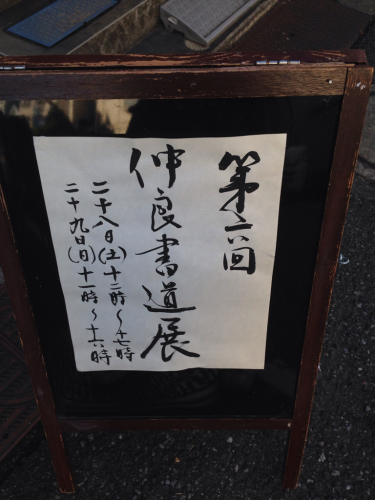 第六回
仲良書道展
二十八日(土)十二時〜十七時
二十九日(日)十一時〜十六時